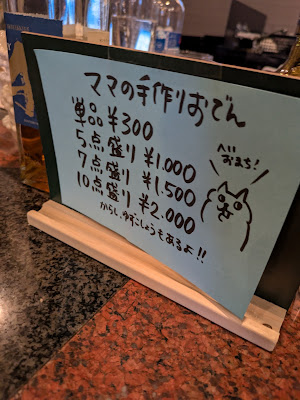 ママの手作りおでん
単品 ¥300
5点盛り ¥1.000
7点盛り ¥1.500
10点盛り ¥2.000
へいおまち!
からし、ゆずこしょうもあるよ!!